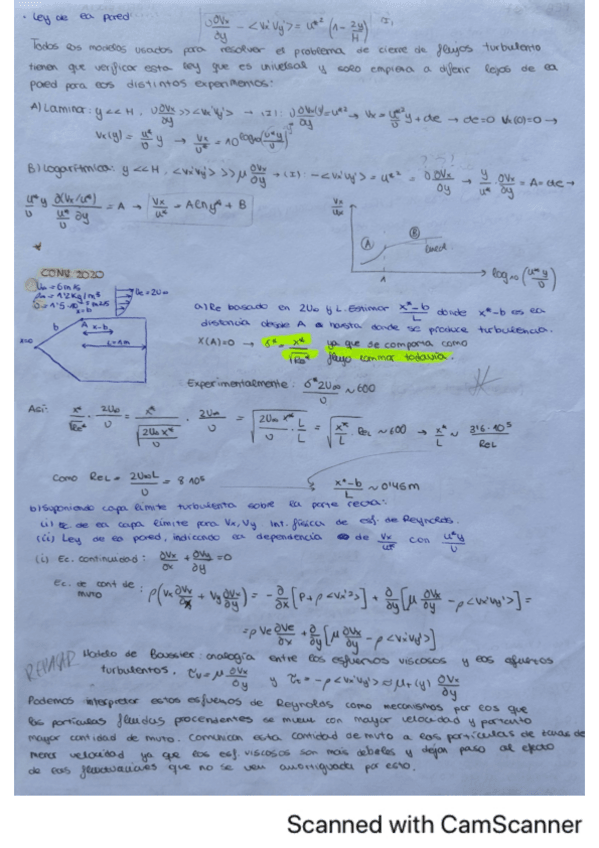 · Ley de la pared: υ∂Vx/∂y - <Vx'Vy'> = u*² (1 - 2y/H) (I)
Todos los modelos usados para resolver el problema de cierre de flujos turbulento
tienen que verificar esta ley que es universal y solo empieza a diferir lejos de la
pared para los distintos experimentos:
A) Laminar: y << H, υ∂Vx/∂y >> <Vx'Vy'> → (I): υ∂Vx/∂y = u*² → Vx = u*²/υ y + cte → cte = 0 Vx(0)=0 →
Vx(y) = u*²/υ y → Vx/u* = 10^log10(u*y/υ)
B) Logarítmica: y << H, <Vx'Vy'> >> μ ∂Vx/∂y → (I): - <Vx'Vy'> = u*² = υ∂Vx/∂y → y/u* · ∂Vx/∂y = A = cte →
u*y/υ ∂(Vx/u*)/(u*/υ ∂y) = A → Vx/u* = A ln y* + B
Vx/u*
A
B
lineal
1
log10 (u*y/υ)
CONV 2020
U∞ = 6 m/s
υ = 1'5·10⁻⁵ m²/s
Ue = 2U∞
x=0
b
A
x-b
L=1m
a) Re basado en 2U∞ y L. Estimar (x*-b)/L donde x*-b es la
distancia desde A hasta donde se produce turbulencia.
X(A)=0 → δ* = x*/√Re* ya que se comporta como
flujo laminar todavía.
Experimentalmente: δ*2U∞/υ ~ 600
Así: x*/√Re* · 2U∞/υ = x*/√(2U∞x*/υ) · 2U∞/υ = √(2U∞x*/υ · L/L) = √(x*/L · ReL) ~ 600 → x*/L ~ 3'6·10⁵/ReL
Como ReL = 2U∞L/υ = 8·10⁵
(x*-b)/L ~ 0'45m
b) Suponiendo capa límite turbulenta sobre la parte recta:
(i) Ec. de la capa límite para Vx, Vy Int. física de esf. de Reynolds.
(ii) Ley de la pared, indicando la dependencia de Vx/u* con u*y/υ
(i) Ec. continuidad: ∂Vx/∂x + ∂Vy/∂y = 0
Ec. de cant de
mvto: ρ(Vx ∂Vx/∂x + Vy ∂Vx/∂y) = - ∂/∂x [P + ρ<Vx'²>] + ∂/∂y [μ ∂Vx/∂y - ρ<Vx'Vy'>] =
= ρVe ∂Ve/∂x + ∂/∂y [μ ∂Vx/∂y - ρ<Vx'Vy'>]
REPASAR Modelo de Boussier: analogía entre los esfuerzos viscosos y los esfuerzos
turbulentos. τv = μ ∂Vx/∂y y τt = -ρ<Vx'Vy'> ≈ μT(y) ∂Vx/∂y
Podemos interpretar estos esfuerzos de Reynolds como mecanismos por los que
las partículas fluidas procendentes se muev con mayor velocidad y por tanto
mayor cantidad de mvto. Comunican esta cantidad de mvto a las partículas de zonas de
menor velocidad ya que los esf. viscosos son más debeles y dejan paso al efecto
de las fluctuaciones que no se ven amortiguada por esto.
Scanned with CamScanner